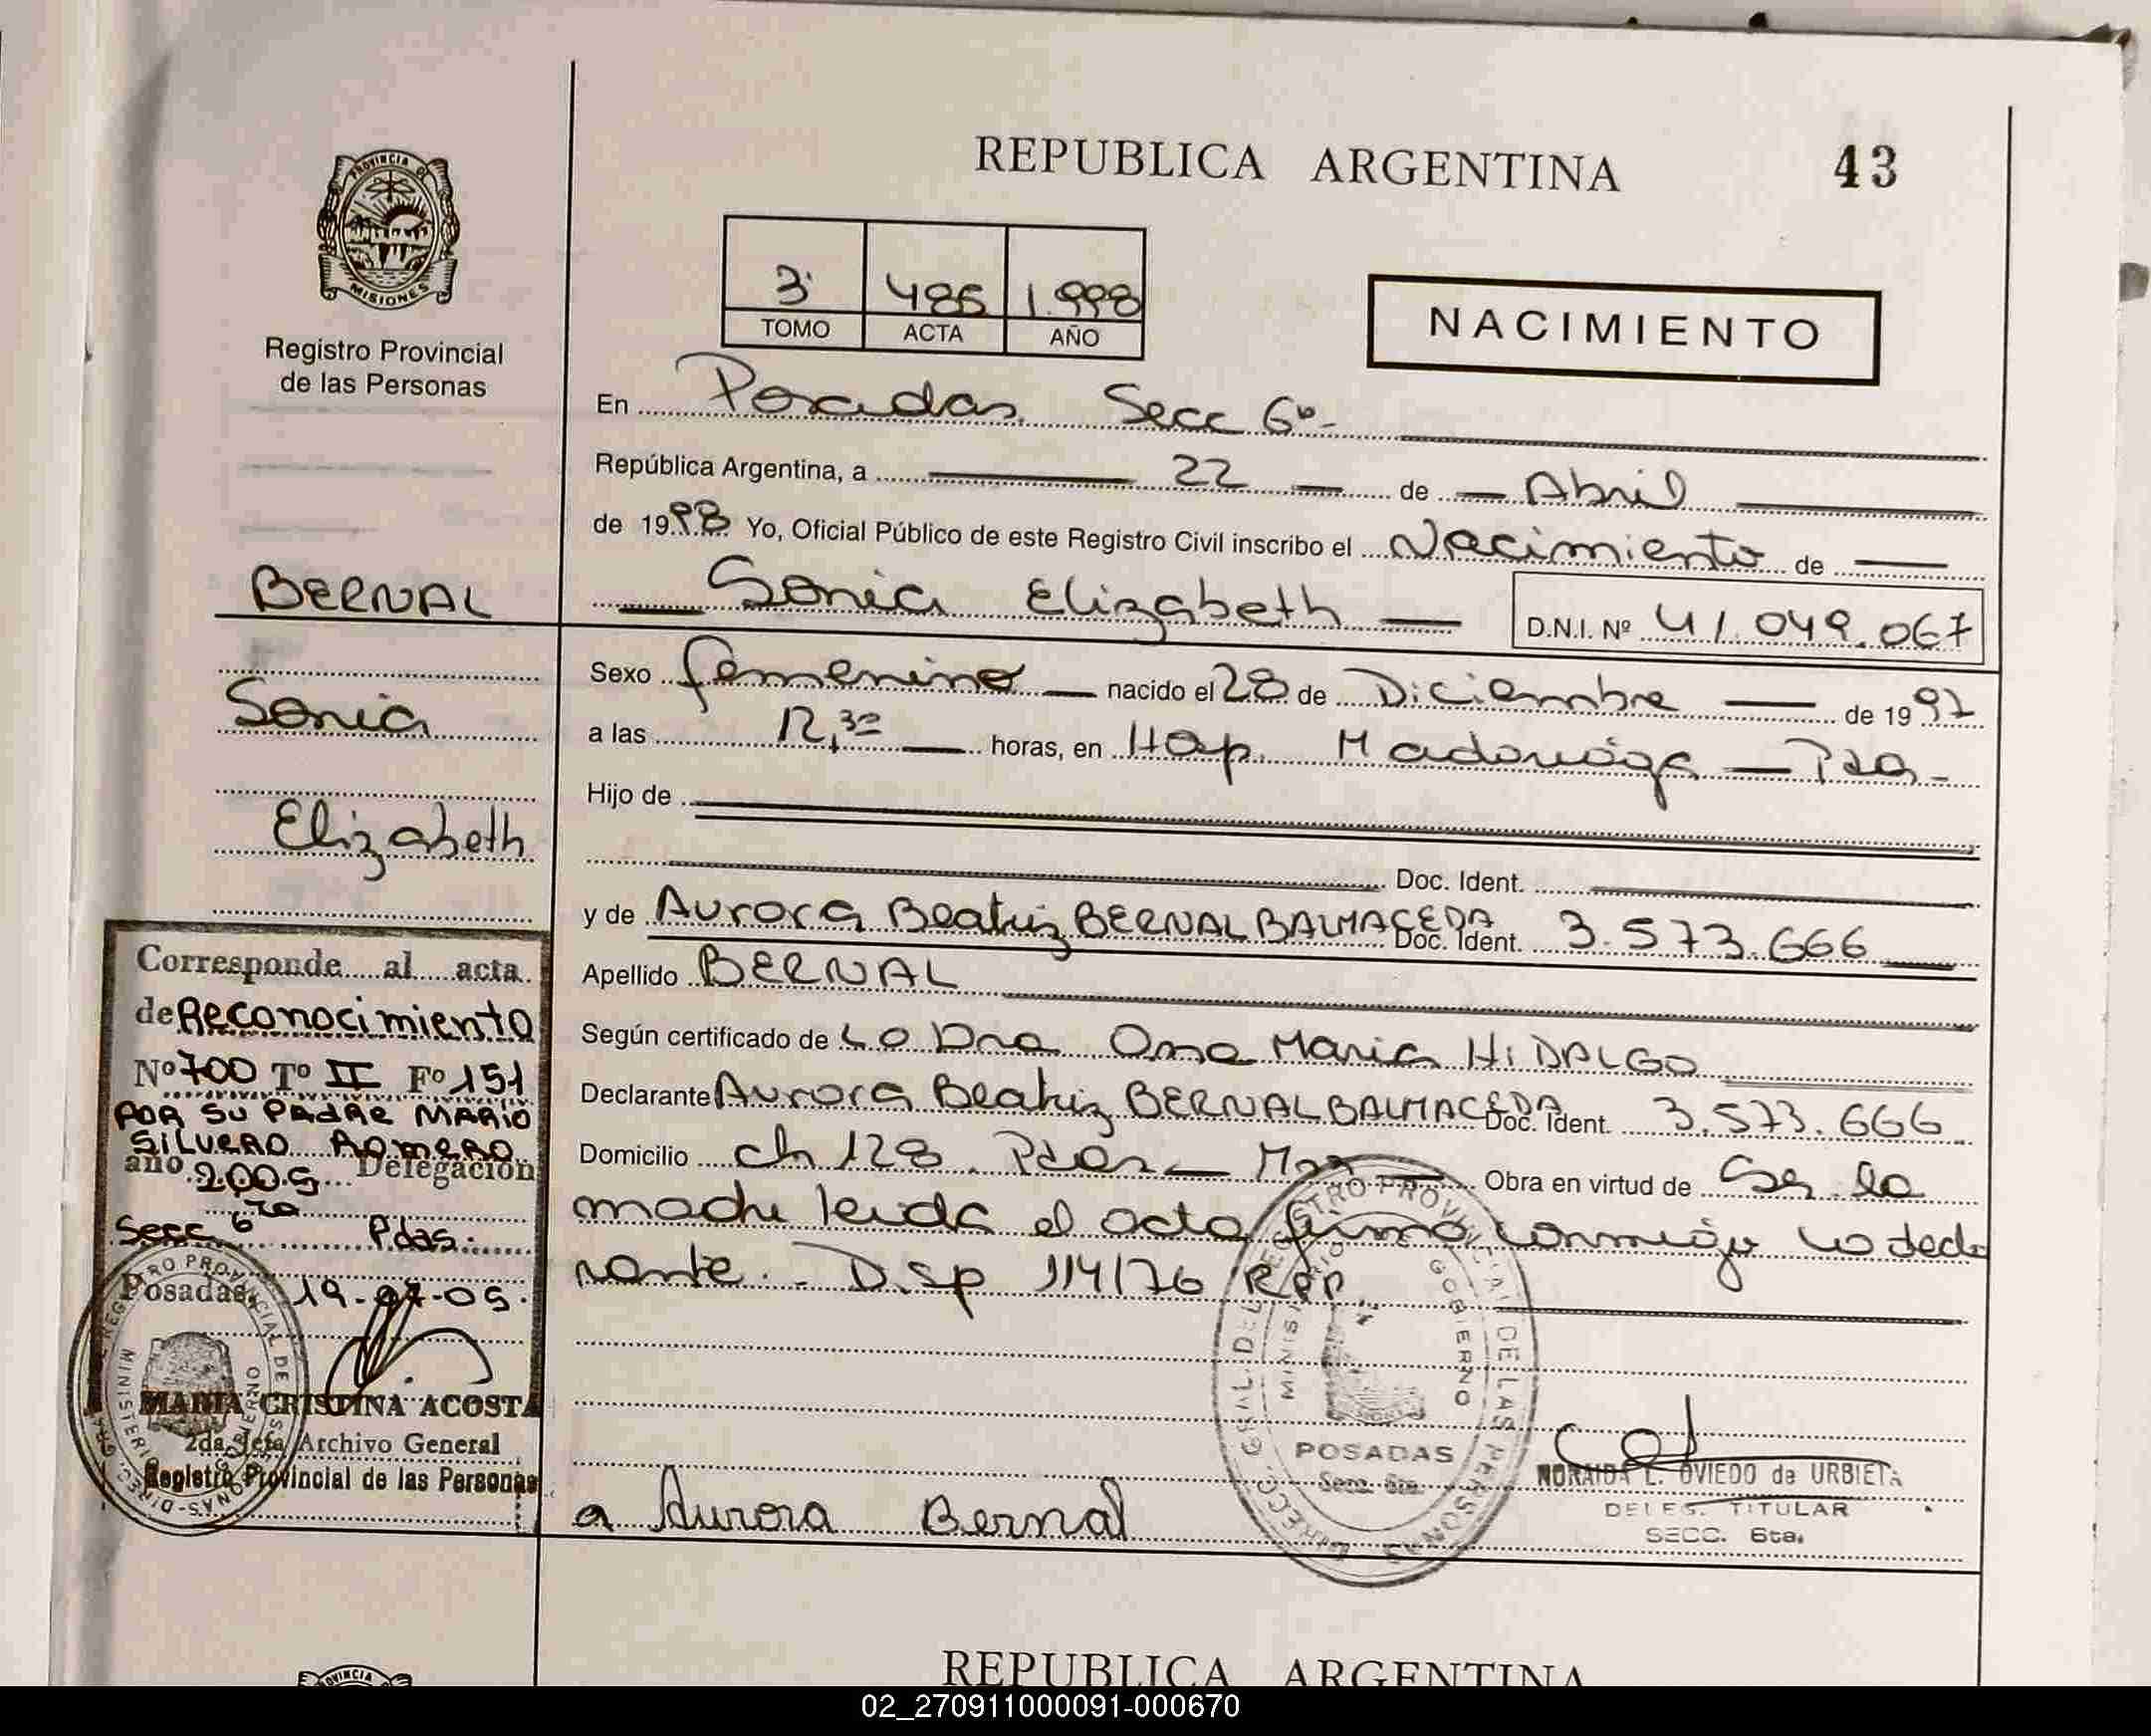 REPUBLICA ARGENTINA
43
PROVINCIA DE
MISIONES
Registro Provincial
de las Personas
3º 485 1.998
TOMO ACTA AÑO
NACIMIENTO
En Posadas Secc 6º-
República Argentina, a 22 de Abril
de 1998 Yo, Oficial Público de este Registro Civil inscribo el Nacimiento de
Sonia Elizabeth
D.N.I. Nº 41.049.067
Sexo femenino nacido el 28 de Diciembre de 1997
a las 12,30 horas, en Hosp. Madariaga - Pdas.
Hijo de
Doc. Ident.
y de Aurora Beatriz BERNAL BALMACEDA Doc. Ident. 3.573.666
Apellido BERNAL
Según certificado de La Dra Ana Maria HIDALGO
Declarante Aurora Beatriz BERNAL BALMACEDA Doc. Ident. 3.573.666
Domicilio ch 128. Pdas. Obra en virtud de Ser la
madre leida el acta firma conmigo la decla
rante. Disp 114/76 RPP.
a Aurora Bernal
BERNAL
Sonia
Elizabeth
Corresponde al acta
de Reconocimiento
Nº 700 Tº II Fº 151
POR SU PADRE MARIO
SILVERO ROMERO
año 2005 Delegación
Secc 6ta Pdas.
Posadas, 19-07-05.
MARIA CRISTINA ACOSTA
2da. Jefa Archivo General
Registro Provincial de las Personas
DIRECC. GRAL. DEL REGISTRO PROVINCIAL DE LAS PERSONAS
MINISTERIO GOBIERNO
POSADAS
Secc. 6ta.
NORAIDA L. OVIEDO de URBIETA
DELEG. TITULAR
SECC. 6ta.
REPUBLICA ARGENTINA
02_270911000091-000670